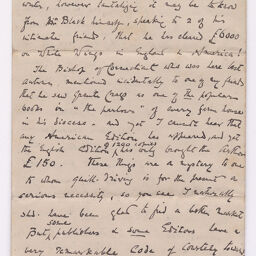 world, however tantalizing it may be to know
from Mr Black himself, speaking to 2 of his
intimate friends, that he has cleared £6000
on White Wings in England & America!
The Bishop of Connecticut who was here last
autumn, mentioned incidentally to one of my friends
that he saw as one of the popular
books in "the parlour" of every farm house
in his diocese. And yet I cannot hear that
any American Edition has appeared, and yet
the English Edition of 1250 copies only brought the Author
£150. These things are a mystery to me
to whom quill-driving is for the present a
serious necessity, so you see I naturally
shd. have been glad to find a better market
But some publishers & some Editors have a
very remarkable Code of Courtesy towards